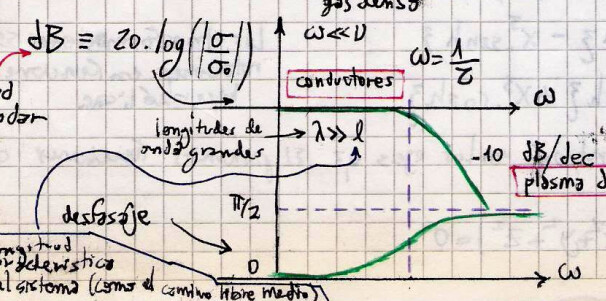 gas denso
dB ≡ 20.log(|σ/σ₀|)
ω<<ν
ω=1/τ
conductores
ω
longitudes de
onda grandes
λ>>l
-10
dB/dec
plasma d
desfasaje
π/2
0
ω
al sistema (como el camino libre medio)